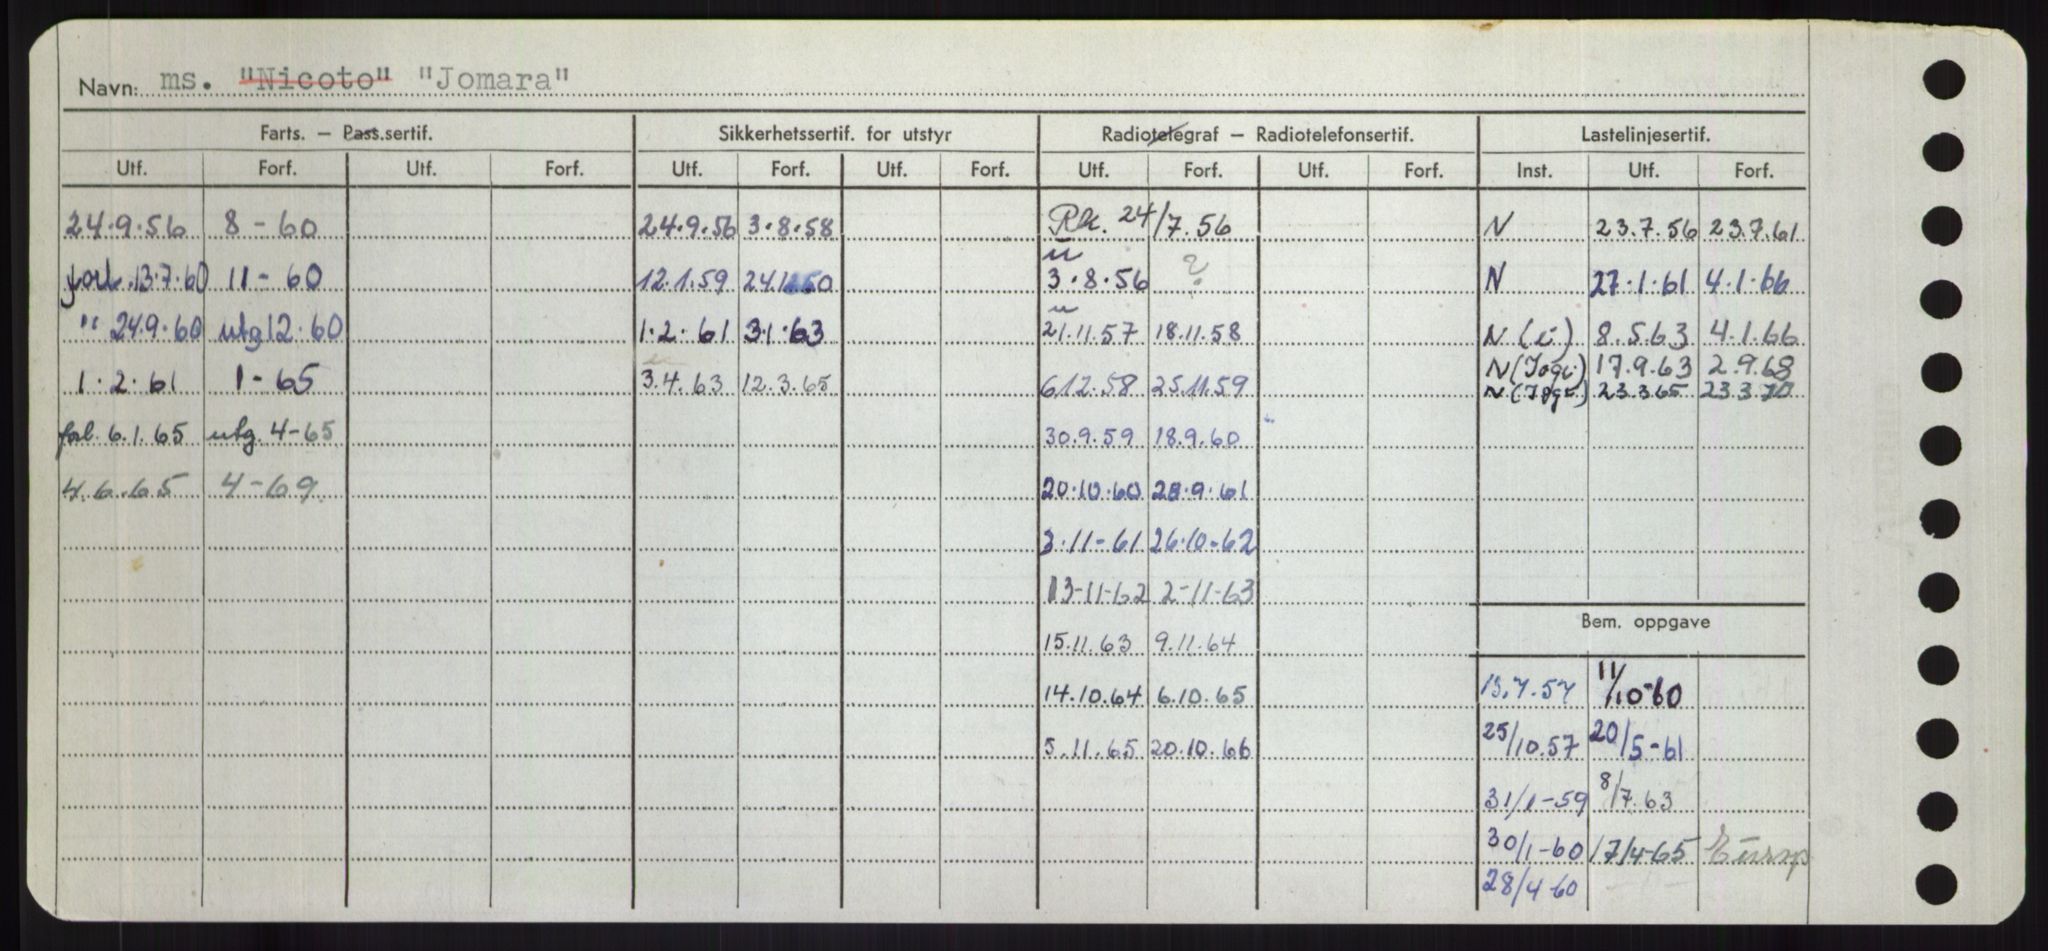 Navn: ms. "Nicoto" "Jomara"
Farts. – Pass.sertif. Sikkerhetssertif. for utstyr Radiotelegraf – Radiotelefonsertif. Lastelinjesertif.
Utf. Forf. Utf. Forf. Utf. Forf. Utf. Forf. Utf. Forf. Utf. Forf. Inst. Utf. Forf.
24.9.56 8-60 24.9.56 3.8.58 24/7.56 N 23.7.56 23.7.61
forl. 13.7.60 11-60 12.1.59 3.8.56 ? N 27.1.61 4.1.66
" 24.9.60 utg 12.60 1.2.61 31.63 21.11.57 18.11.58 N (i) 8.5.63 4.1.66
1.2.61 1-65 3.4.63 12.3.65 6.12.58 25.11.59 N 17.9.63 2.9.68
N 23.3.65 23.3.70
forl. 6.1.65 utg. 4-65 30.9.59 18.9.60
4.6.65 4-69 20.10.60 28.9.61
3.11-61 26.10-62
13-11-62 2-11-63
Bem. oppgave
15.11.63 9.11.64
14.10.64 6.10.65 13.7.57 11/10-60
5.11.65 20.10.66 25/10.57 20/5-61
31/1-59 8/7.63
30/1-60 17/4-65
28/4-60